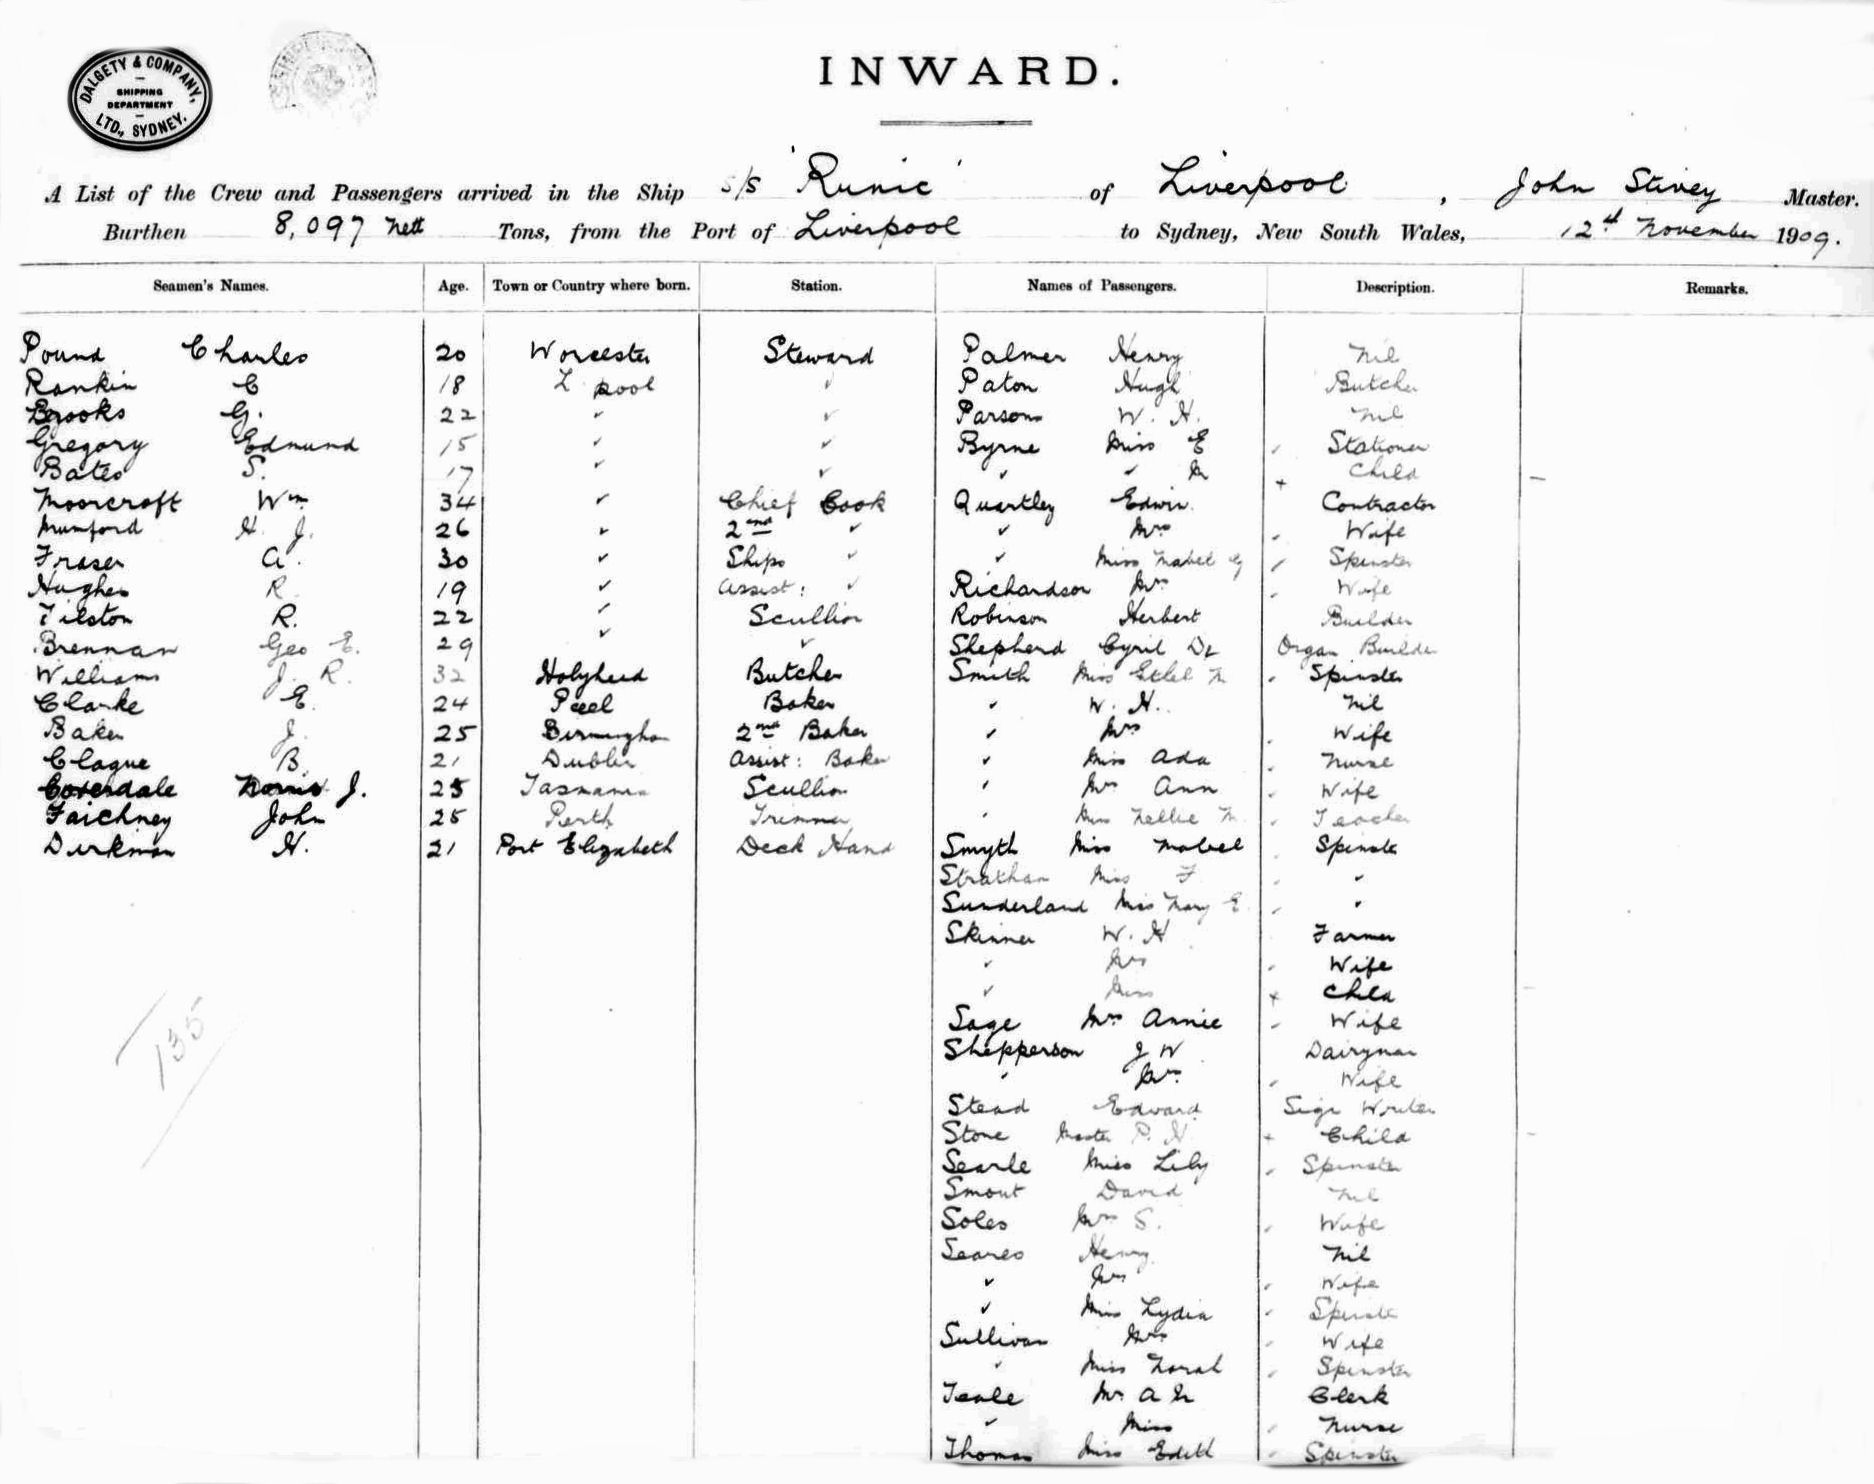 DALGETY & COMPANY,
SHIPPING
DEPARTMENT
LTD., SYDNEY.
INWARD.
A List of the Crew and Passengers arrived in the Ship s/s 'Runic' of Liverpool, John Stivey Master.
Burthen 8,097 Nett Tons, from the Port of Liverpool to Sydney, New South Wales, 12th November 1909.
Seamen's Names. Age. Town or Country where born. Station. Names of Passengers. Description. Remarks.
Pound Charles 20 Worcester Steward Palmer Henry Nil
Rankin C 18 L'pool " Paton Hugh Butcher
Brooks G. 22 " " Parsons W. H. Nil
Gregory Edmund 15 " " Byrne Miss E Stationer
Bates S. 17 " " " " M Child
Moorcroft Wm 34 " Chief Cook Quartley Edwin Contractor
Mumford H. J. 26 " 2nd " " Mrs Wife
Fraser A. 30 " Ships " " Miss Mabel Spinster
Hughes R. 19 " Assist: " Richardson Mrs Wife
Tilston R. 22 " Scullion Robinson Herbert Builder
Brennan Geo E. 29 " " Shepherd Cyril De Organ Builder
Williams J. R. 32 Holyhead Butcher Smith Miss Ethel M Spinster
Clarke E. 24 Peel Baker " W. H. Nil
Baker J. 25 Birmingham 2nd Baker " Mrs Wife
Clague B. 21 Dublin Assist: Baker " Miss Ada Nurse
Coverdale Norris J. 25 Tasmania Scullion " Mrs Ann Wife
Faichney John 25 Perth Trimmer " Miss Nellie M. Teacher
Dirkman H. 21 Port Elizabeth Deck Hand Smyth Miss Mabel Spinster
Strathan Miss F "
Sunderland Miss Mary E. "
Skinner W. H Farmer
" Mrs Wife
" Miss Child
Sage Mrs Annie Wife
Shepperson J W Dairyman
" Mrs Wife
Stead Edward Sign Writer
Stone Master P. H. Child
Searle Miss Lily Spinster
Smout David Nil
Soles Mrs S. Wife
Seares Henry Nil
" Mrs Wife
" Miss Lydia Spinster
Sullivan Mrs Wife
" Miss Norah Spinster
Teale Mr A Clerk
" Miss Nurse
Thomas Miss Edith Spinster
135